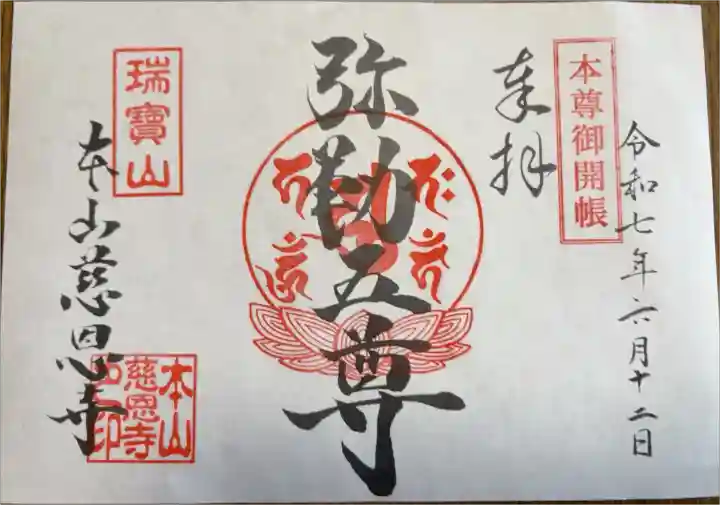 令和七年六月十二日
本尊御開帳
奉拝
弥勒五尊
瑞寳山
本山慈恩寺
本山
慈恩寺
之印